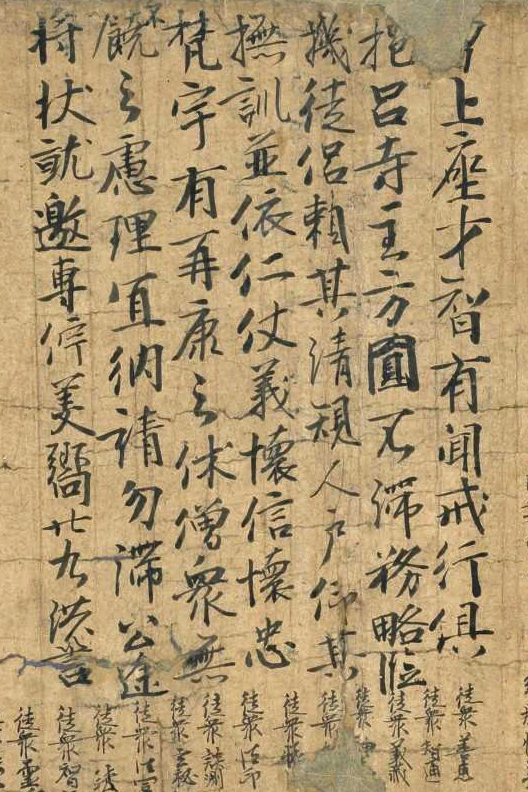 上座才智有聞戒行俱
抱呂寺主方圓不滯務略臨
機徒侶賴其清規人戶仰其
撫訓並依仁仗義懷信懷忠
梵宇有再康之休僧衆無
不饒之慮理宜納請勿滯公途
將狀就邀專佇美嚮廿九洪䛒
徒衆善惠
徒衆智通
徒衆義藏
徒衆
徒衆
徒衆
徒衆法印
徒衆談測
徒衆
徒衆法
徒衆
徒衆智
徒衆靈